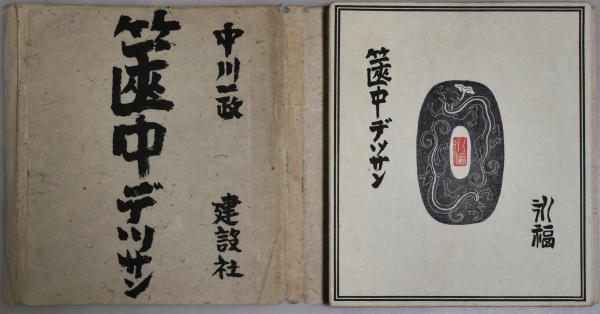 中川一政
建設社
篋中デツサン
篋中デツサン
永福
永福